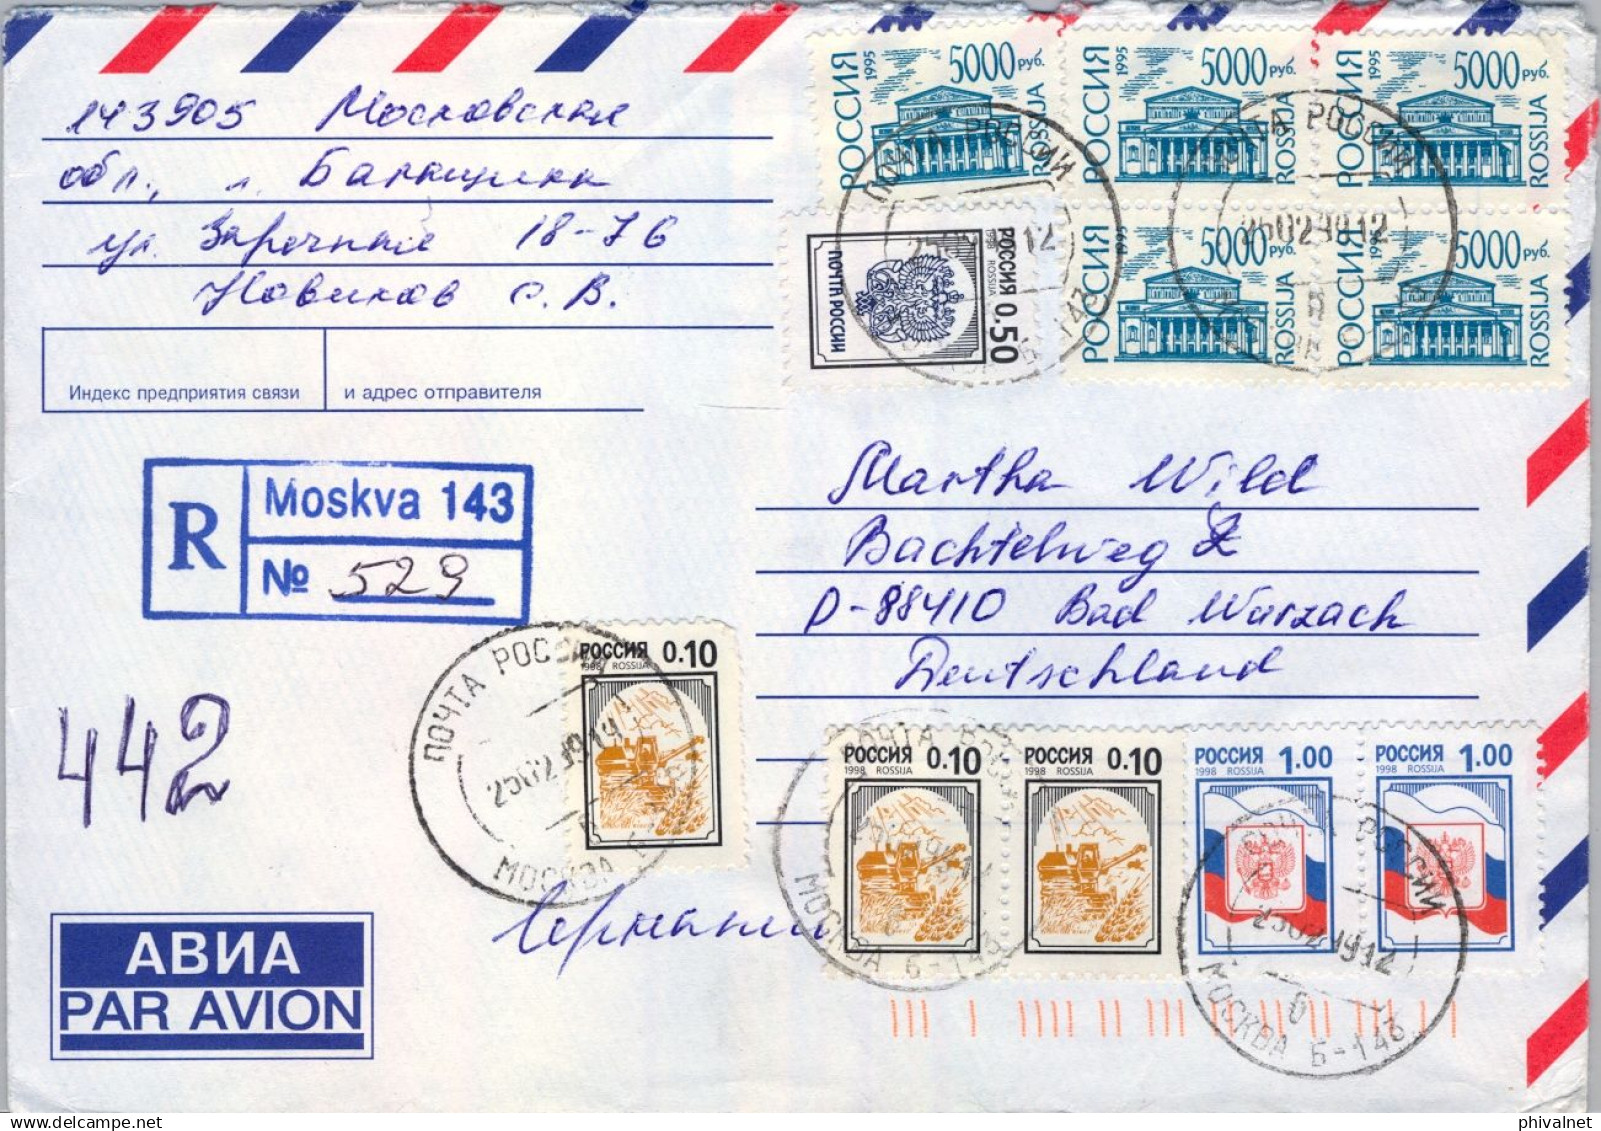 143905 Московская
обл., г. Балашиха
ул. Заречная 18-76
Новиков С. В.
Индекс предприятия связи и адрес отправителя
R Moskva 143
№ 529
442
АВИА
PAR AVION
Германия
Martha Wild
Bachtelweg 2
D-88410 Bad Wurzach
Deutschland
РОССИЯ 1995 5000 руб. ROSSIJA
РОССИЯ 1995 5000 руб. ROSSIJA
РОССИЯ 1995 5000 руб. ROSSIJA
РОССИЯ 1995 5000 руб. ROSSIJA
РОССИЯ 1995 5000 руб. ROSSIJA
РОССИЯ 0.50
1998 ROSSIJA
ПОЧТА РОССИИ
РОССИЯ 0.10
1998 ROSSIJA
РОССИЯ 0.10
1998 ROSSIJA
РОССИЯ 0.10
1998 ROSSIJA
РОССИЯ 1.00
1998 ROSSIJA
РОССИЯ 1.00
1998 ROSSIJA
ПОЧТА РОССИИ
ПОЧТА РОССИИ
25029912
ПОЧТА РОССИИ
МОСКВА
МОСКВА Б-143
ПОЧТА РОССИИ
МОСКВА Б-143
phivalnet